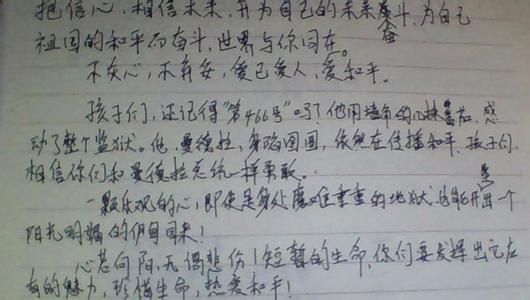 把信心,相信未来,并为自己的未来奋斗,为自己
祖国的和平而奋斗,世界与你同在。
不灰心,不弃妥,爱己爱人,爱和平。
孩子们,还记得“第466号”吗?他用掐命的几株番茄,感
动了整个监狱。他,曼德拉,身陷囹圄,依然在传播和平,孩子们,
相信你们和曼德拉总统一样勇敢。
一颗乐观的心,即使是身处磨难重重的地狱,也能开出一个
阳光明媚的伊甸园来!
心若向阳,无惧悲伤!短暂的生命,你们要发挥出它应
有的魅力,珍惜生命,热爱和平!